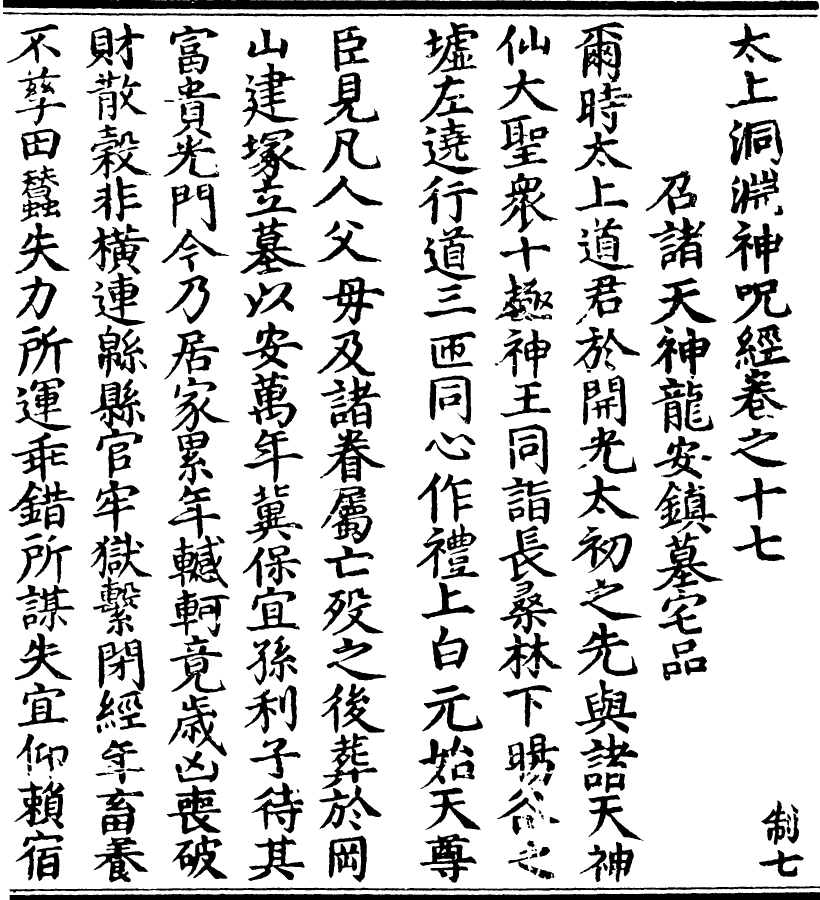 太上洞淵神呪經卷之十七
制七
召諸天神龍安鎮墓宅品
爾時太上道君於開光太初之先與諸天神
仙大聖衆十極神王同詣長桑林下暘谷之
墟左遶行道三匝同心作禮上白元始天尊
臣見凡人父母及諸眷屬亡殁之後葬於岡
山建塚立墓以安萬年冀保宜孫利子待其
富貴光門今乃居家累年轗軻竟歲凶喪破
財散穀非橫連緜縣官牢獄繫閉經年畜養
不孳田蠶失力所運乖錯所謀失宜仰賴宿